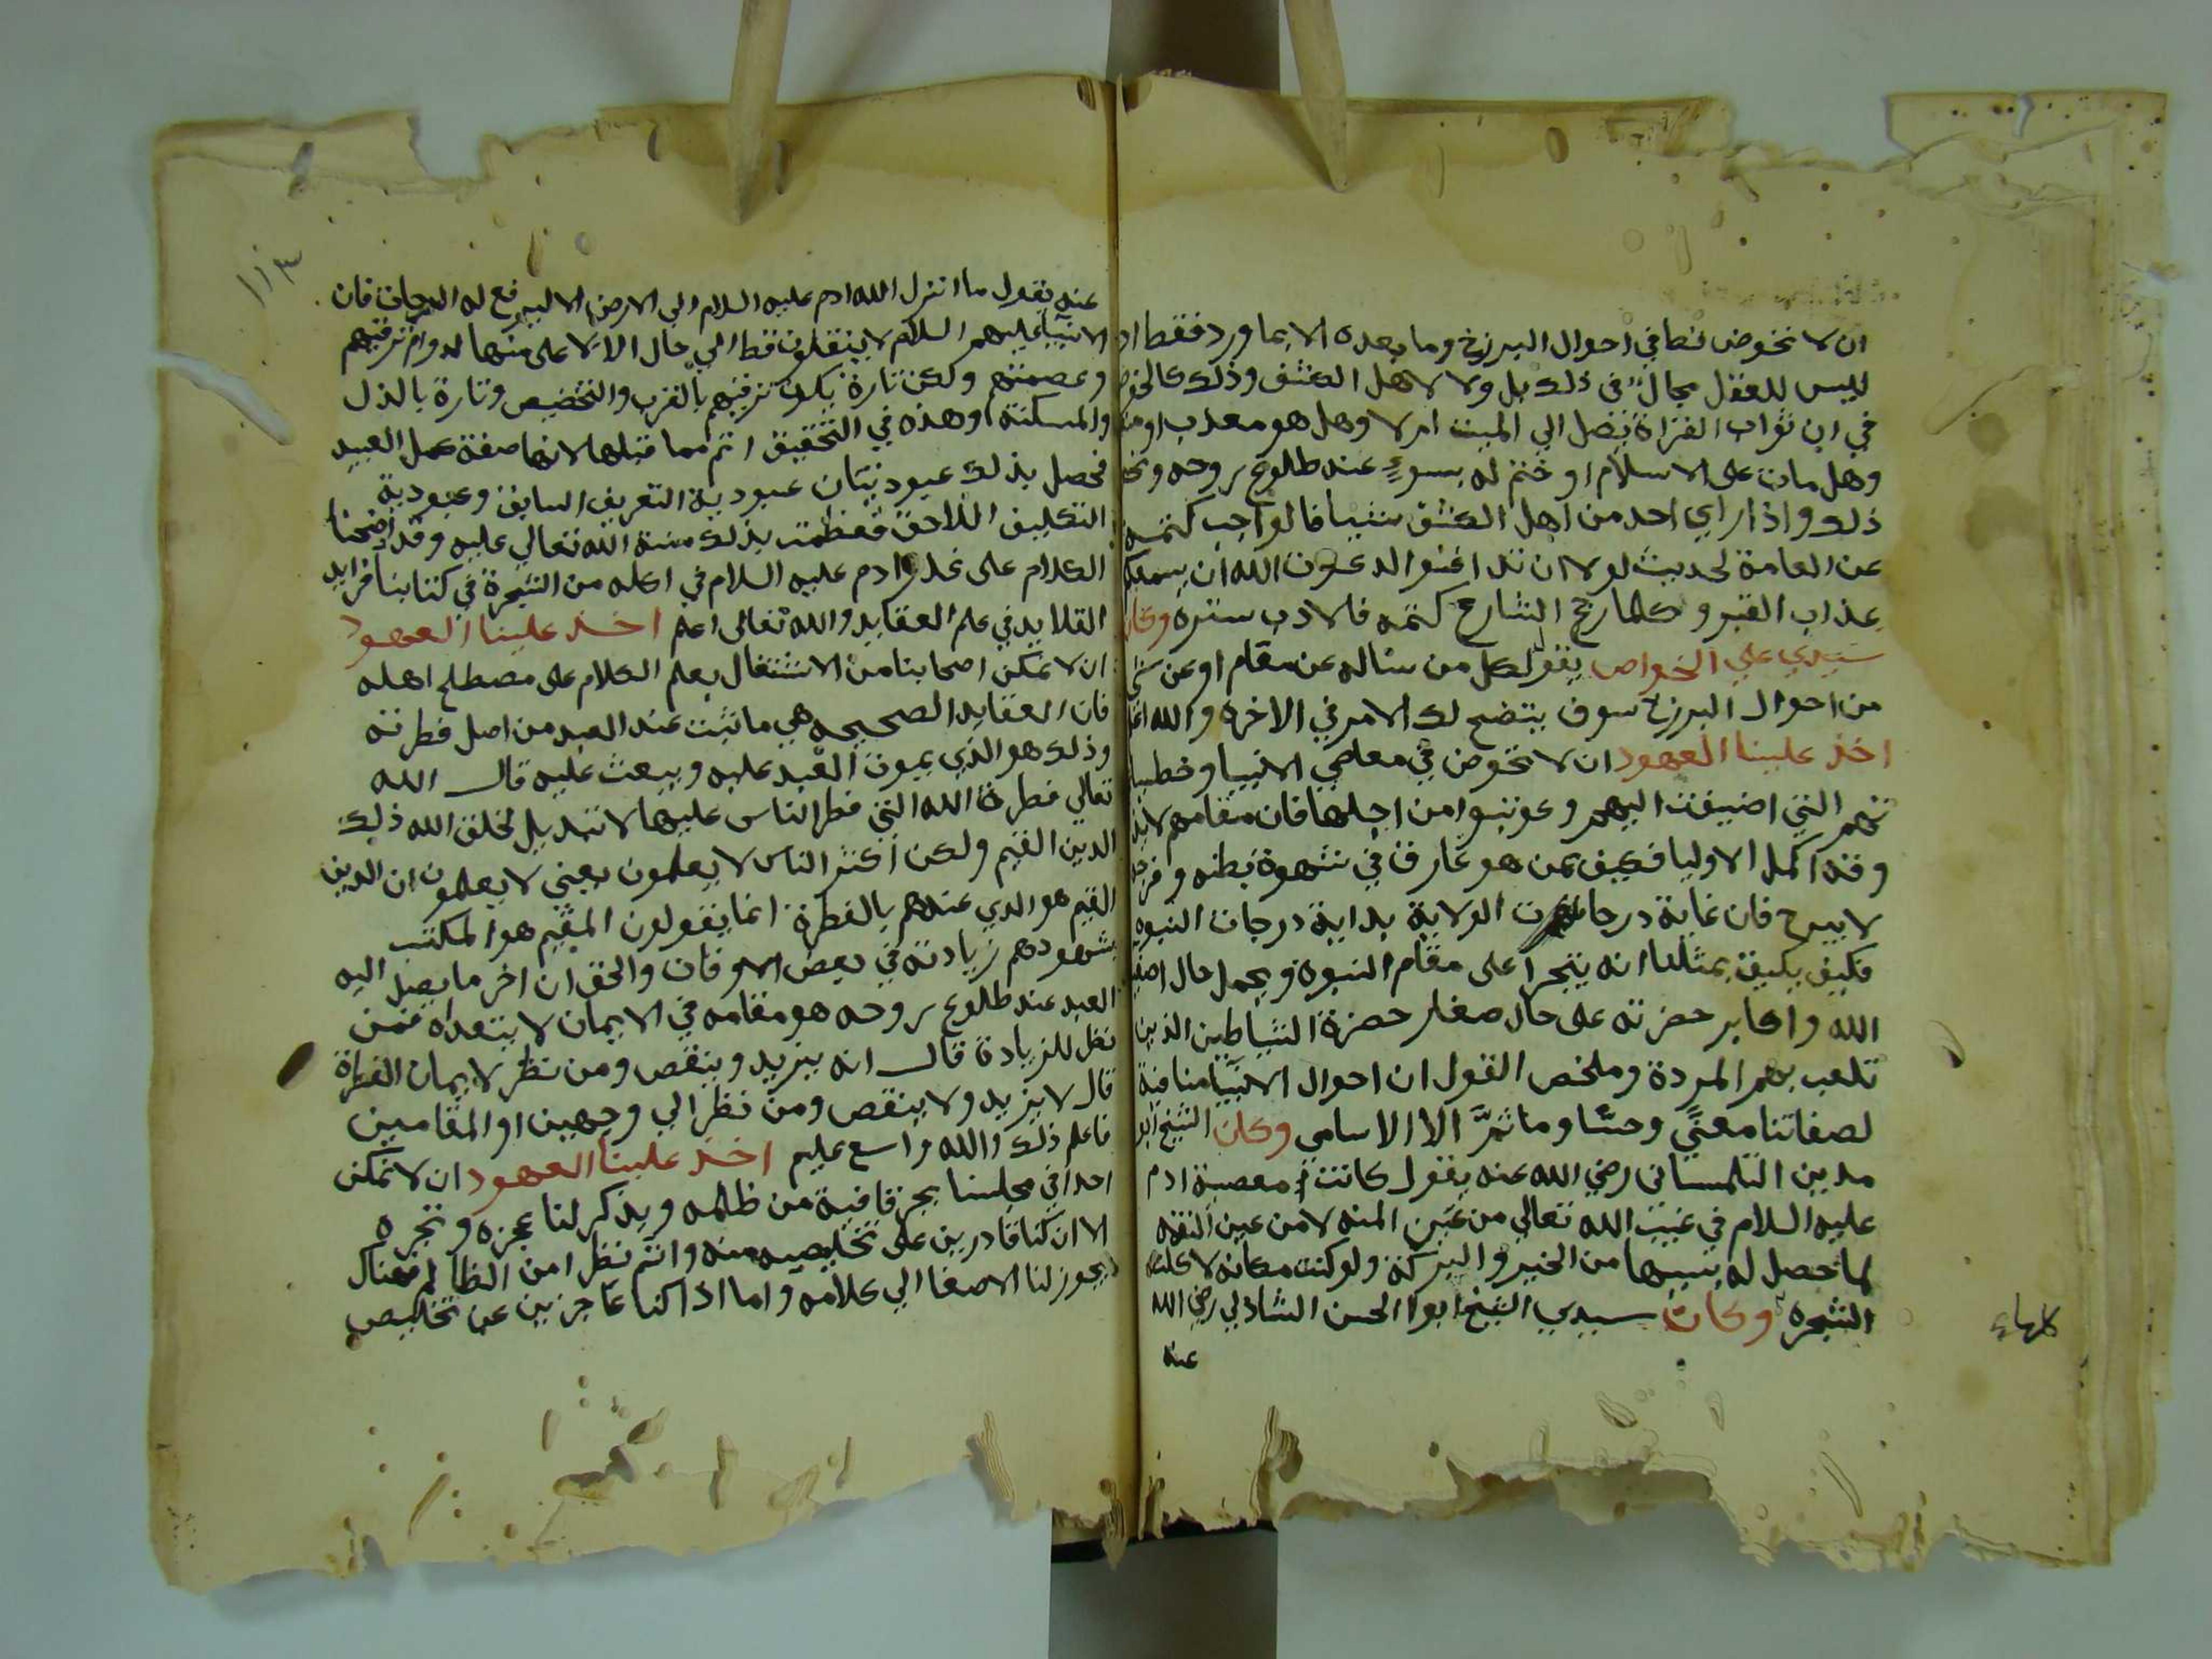 ان لا نخوض قط في احوال البرزخ وما بعده الا بما ورد فقط اذ
ليس للعقل مجال في ذلك بل ولا لاهل الكشف وذلك كالخوض
في ان ثواب القراة يصل الي الميت ام لا وهل هو معذب او
وهل مات على الاسلام او ختم له بسوءٍ عند طلوع روحه ونحو
ذلك واذا راي احد من اهل الكشف شيا فالواجب كتمه
عن العامة لحديث لولا ان تدافنوا لدعوت الله ان يسمعكم
عذاب القبر وكلما رجح الشارع كتمه فالادب ستره وكان
سيدي علي الخواص يقول لكل من ساله عن مقام او عن شي
من احوال البرزخ سوف يتضح لك الامر في الاخرة والله اعلم
اخذ علينا العهود ان لا نخوض في معاصي الانبيا وخطيا
تهم التي اضيفت اليهم وعوتبوا من اجلها فان مقامهم لا
وقه اكمل الاوليا فكيف بمن هو غارق في شهوة بطنه وفرجه
لا يبرح فان غاية درجات الولاية بداية درجات النبوه
فكيف يليق بمثلنا انه يتجرا على مقام النبوة ويحمل حال اصفيا
الله واكابر حضرته على حال صغار حضرة الشياطين الذين
تلعب بهم المردة وملخص القول ان احوال الانبيا منافية
لصفاتنا معنًي وحسًا وما ثمَّ الا الاسامي وكان الشيخ ابو
مدين التلمساني رضي الله عنه يقول كانت معصية ادم
عليه السلام في غيب الله تعالي من عين المنه لا من عين النقمه
لما حصل له بسببها من الخير والبركة ولو كنت مكانه لا كلت
الشجره وكان سيدي الشيخ ابوا الحسن الشاذلي رضي الله
عنه
كلها ء
١١٣
عنه يقول ما انزل الله ادم عليه السلام الي الارض الا ليرفع له الدرجات فان
الانبيا عليهم السلام لا ينتقلون قط الي حال الا لاعلى منها لدوام ترقيهم
وعصمتهم ولكن تارة يكون ترقيهم بالقرب والتخصيص وتارة بالذل
والمسكنة وهذه في التحقيق اتم مما قبلها لانها صفة عمل العبيد
فحصل بذلك عبوديتان عبودية التعريف السابق وعبودية
التكليف اللاحق فعظمت بذلك منة الله تعالي عليه وقد اوضحنا
الكلام على عذر ادم عليه السلام في اكله من الشجرة في كتابنا فرايد
القلايد في علم العقايد والله تعالى اعلم اخذ علينا العهود
ان لا نمكن اصحابنا من الاشتغال بعلم الكلام على مصطلح اهله
فان العقايد الصحيحه هي ما ثبت عند العبد من اصل فطرته
وذلك هو الذي يموت العبد عليه ويبعث عليه قال الله
تعالي فطرة الله التي فطر الناس عليها لا تبديل لخلق الله ذلك
الدين القيم ولكن اكثر الناس لا يعلمون يعني لا يعلمون ان الدين
القيم هو الذي عندهم بالفطرة انما يقولون المقيم هو المكتسب
بشهودهم زيادته في بعض الاوقات والحق ان اخر ما يصل اليه
العبد عند طلوع روحه هو مقامه في الايمان لا يتعداه فمن
نظر للزيادة قال انه يزيد وينقص ومن نظر لايمان الفطرة
قال لا يزيد ولا ينقص ومن نظر الي وجهين او المقامين
فاعلم ذلك والله واسع عليم اخذ علينا العهود ان لا نمكن
احدا في مجلسنا يجر قافية من ظلمه ويذكر لنا عجزه وتجره
الا ان كنا قادرين على تخليصه منه وانتم نظرا من الظالم فهناك
يجوز لنا الاصغا الي كلامه واما اذا كنا عاجزين عن تخليص